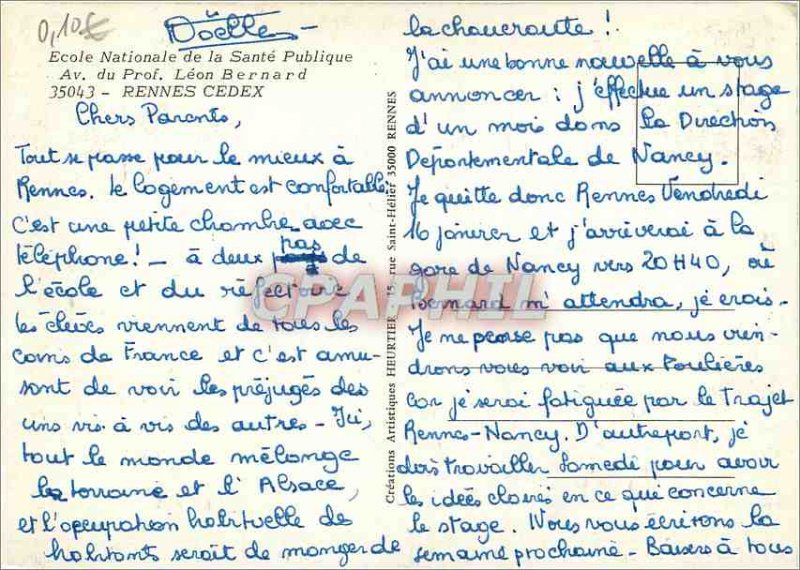 0,10€
Doëlle -
Ecole Nationale de la Santé Publique
Av. du Prof. Léon Bernard
35043 - RENNES CEDEX
Chers Parents,
Tout se passe pour le mieux à
Rennes. Le logement est confortable.
C'est une petite chambre avec
téléphone! - à deux pas de
l'école et du réfectoire
les élèves viennent de tous les
coins de France et c'est amu-
sant de voir les préjugés des
uns vis à vis des autres - Ici,
tout le monde mélange
la Lorraine et l'Alsace,
et l'occupation habituelle de
habitants serait de manger de
la choucroute!
J'ai une bonne nouvelle à vous
annoncer : j'effectue un stage
d'un mois dans la Direction
Départementale de Nancy.
Je quitte donc Rennes Vendredi
16 janvier et j'arriverai à la
gare de Nancy vers 20H40, où
Bernard m'attendra, je crois -
Je ne pense pas que nous vien-
drons vous voir aux
car je serai fatiguée par le trajet
Rennes-Nancy. D'autre part, je
dois travailler Samedi pour avoir
les idées claires en ce qui concerne
le stage. Nous vous écrirons la
semaine prochaine - Baisers à tous
Créations Artistiques HEURTIER - 15, rue Saint-Hélier 35000 RENNES
CPAPHIL